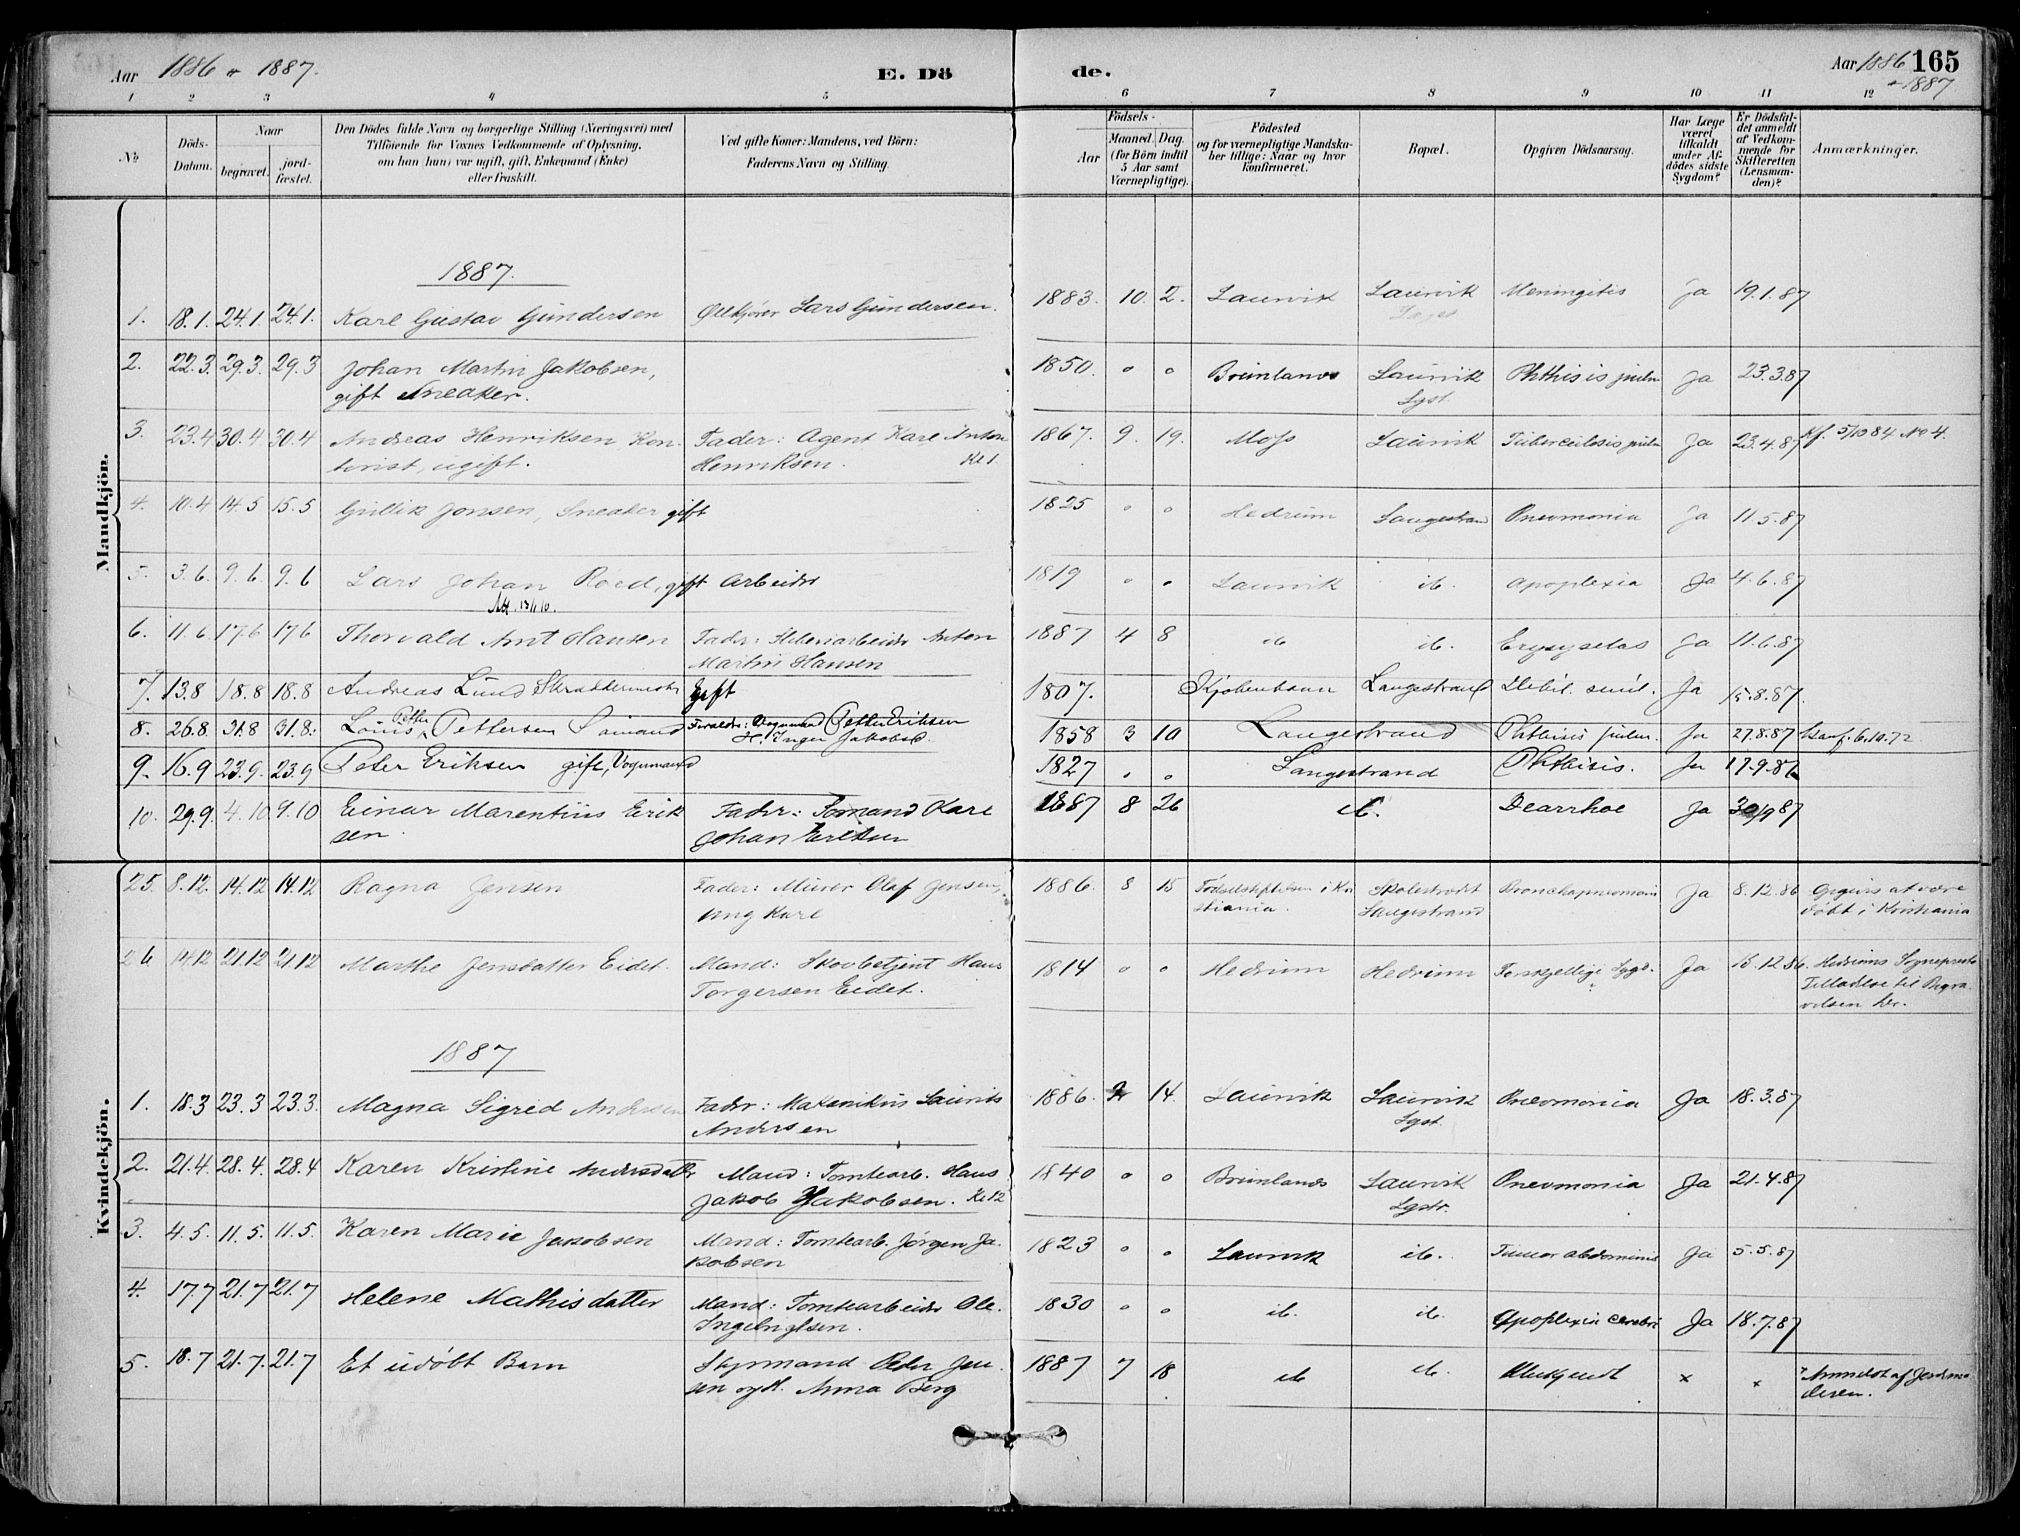 Aar 1886 & 1887. E. Döde. Aar 1886 & 1887 165
1 2 3 4 5 6 7 8 9 10 11 12
No
Döds-Datum.
Naar
begravet.
jord-fæstet.
Den Dödes fulde Navn og borgerlige Stilling (Næringsvei) med
Tilföiende for Voxnes Vedkommende af Oplysning,
om han (hun) var ugift, gift, Enkemand (Enke)
eller fraskilt.
Ved gifte Koner: Mandens, ved Börn:
Faderens Navn og Stilling.
Födsels-
Aar
Maaned. Dag.
(for Börn indtil
5 Aar samt
Værnepligtige).
Födested
og for værnepligtige Mandska-
ber tillige: Naar og hvor
konfirmeret.
Bopæl.
Opgiven Dödsaarsag.
Har Læge
været
tilkaldt
under Af-
dödes sidste
Sygdom?
Er Dödsfal-
det anmeldt
af Vedkom-
mende for
Skifteretten
(Lensman-
den)?
Anmærkninger.
Mandkjön.
1887.
1. 18.1. 24.1. 24.1. Karl Gustav Gundersen Ølkjører Lars Gundersen. 1883. 10. 2. Laurvik Laurvik Meningitis Ja 19.1.87
2. 22.3. 29.3. 29.3 Johan Martin Jakobsen, 1850. " " Brunlands Laurvik Phthisis pulm Ja 23.3.87
gift Sneaker. Lgst.
3. 23.4 30.4 30.4 Andreas Henriksen, Kon- Fader: Agent Karl Anton 1867. 9. 19. Moss Laurvik Tuberculosis pulm Ja 23.4.87 Kf. 5/10 84 No 4.
torist, ugift. Henriksen.
4. 10.4 14.5 15.5 Gullik Jonsen, Sneaker gift 1825 " " Hedrum Langestrand Pneumonia Ja 11.5.87
5. 3.6. 9.6. 9.6 Lars Johan Röed, gift Arbeider 1819 " " Laurvik ib. Apoplexia Ja 4.6.87
6. 11.6 17.6 17.6 Thorvald Arnt Hansen Fader: Arbeider Anton 1887 4 8 ib ib. Erysipelas Ja 11.6.87
Martin Hansen
7. 13.8 18.8 18.8 Andreas Lund Skræddermester Gift 1807. Kjøbenhavn Langestrand Debil. senil. Ja 15.8.87.
8. 26.8. 31.8 31.8. Louis Petter Pettersen Sømand Forældre: Vognmand Petter Eriksen 1858 3 10 Langestrand Phthisis pulm. Ja 27.8.87 Konf. 6.10.72
H. Inger Jakobsd.
9. 16.9 23.9. 23.9 Peter Eriksen gift, Vognmand 1827 " " Langestrand Phthisis. Ja 17.9.87
10. 29.9. 4.10 9.10 Einar Marentius Erik Fader: Sømand Karl 1887 8 26 ib. Dearrhoe Ja 30/9 87
sen. Johan Eriksen
Kvindekjön.
25. 8.12. 14.12 14.12 Ragna Jensen Fader: Murer Olaf Jensen, 1886. 8 15 Fødselstiftelsen i Kri Skolestrædet Bronchopneumoni Ja 8.12.86 Opgives at være
Ungkarl stiania. Langestrand døbt i Kristiania
26 14.12 21.12 21.12 Marthe Jensdatter Eidet. Mand: Skovbetjent Hans 1814 " " Hedrum Hedrum Forskjellige Sygd. Ja 15.12.86. Hedrums Sogneprests
Torgersen Eidet. Tilladelse til Begra-
velsen her.
1887
1. 18.3 23.3 23.3. Magna Sigrid Andersen Fader: Maskinikus Laurits 1886. 14. Laurvik Laurvik Pneumonia Ja 18.3.87
Andersen Lgst.
2. 21.4. 28.4. 28.4 Karen Kristine Andersdatter Mand: Tomtearb. Hans 1840 " " Brunlands Laurvik Pneumonia Ja 21.4.87
Jakob Jakobsen. Kl 2 Lgstr.
3. 4.5. 11.5. 11.5. Karen Marie Jakobsen Mand: Tomtearb. Jørgen Ja- 1823 " " Laurvik ib. Tumor abdominis Ja 5.5.87
kobsen
4. 17.7 21.7 21.7 Helene Mathisdatter Mand: Tomtearbeider Ole 1830 " " ib. ib. Apoplexia cerebri Ja 18.7.87
5. 18.7 21.7. 21.7 Et udöbt Barn Styrmand Peder Jen- 1887 7 18 ib ib. x x Anmeldt af Jordmo-
sen og H. Anna Berg deren.